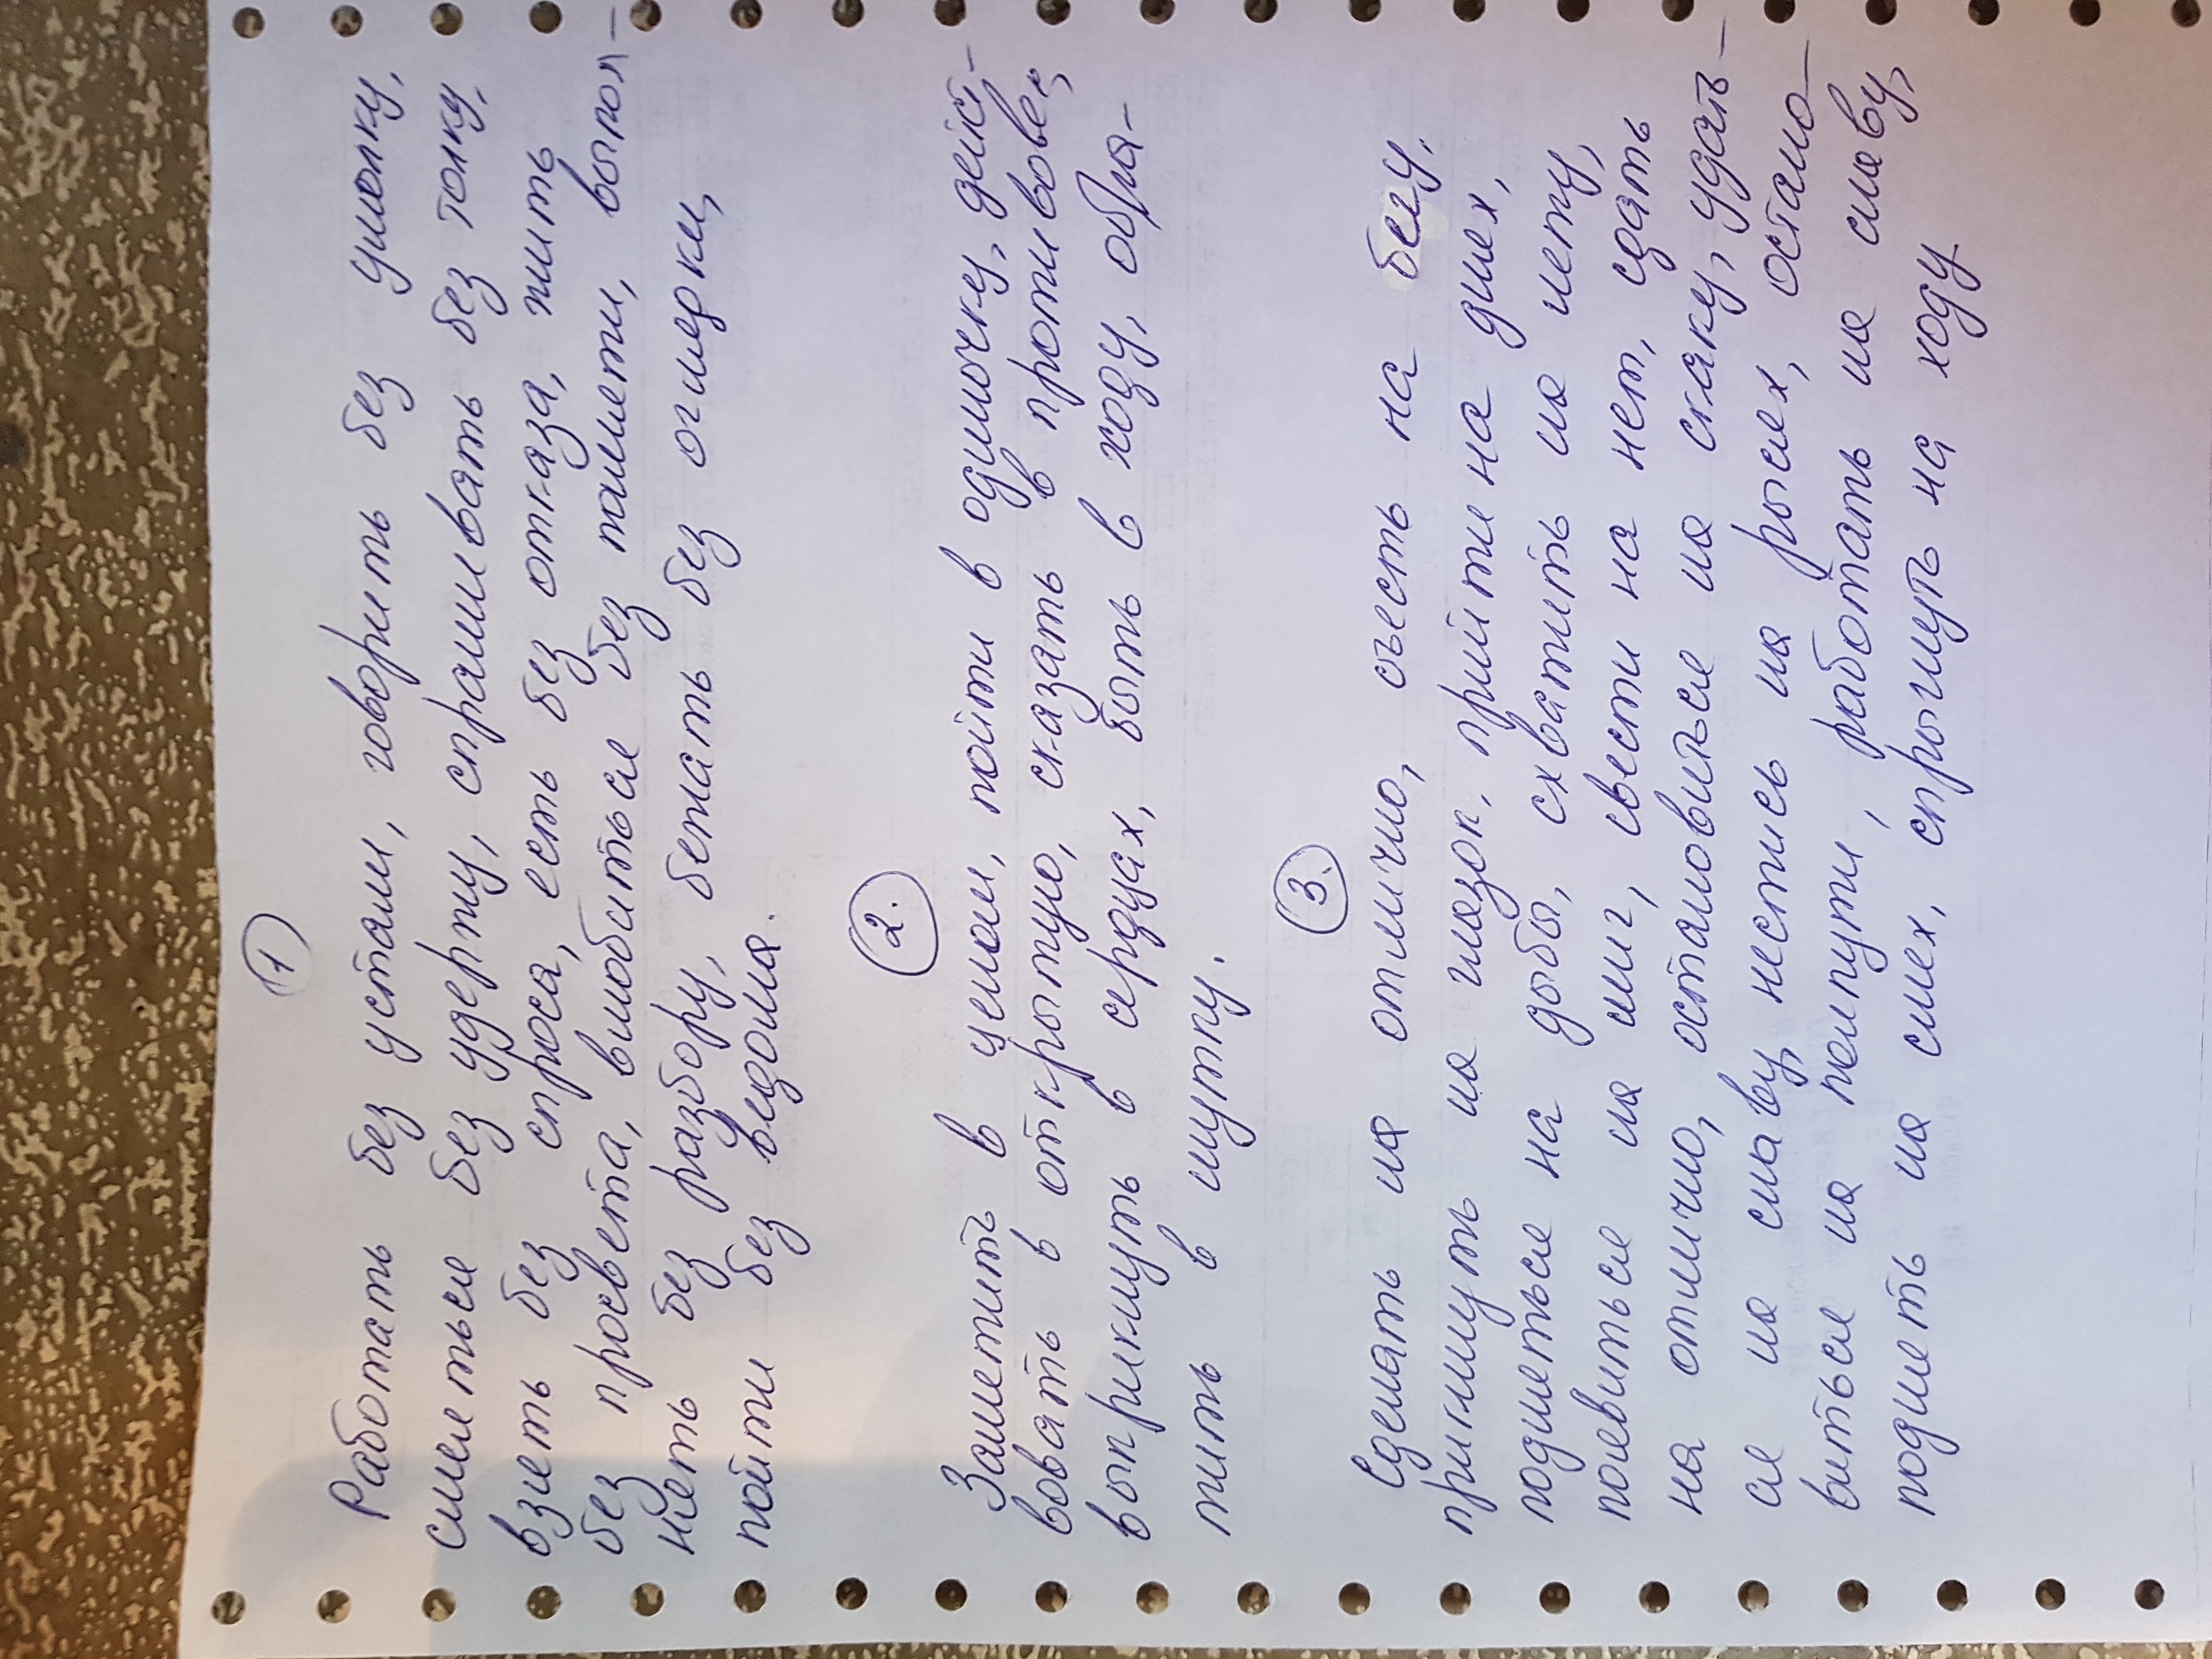 1
Работать без устали, говорить без умолку,
смеяться без удержу, спрашивать без толку,
взять без спроса, есть без отказа, жить
без просвета, влюбиться без памяти, выпол-
нять без разбору, бежать без оглядки,
пойти без ведома.
2.
Заметить в целом, пойти в одиночку, дейс-
вовать в открытую, сказать в противовес,
выкрикнуть в сердцах, быть в ходу, обла-
тить в шутку.
3.
Сделать на отлично, съесть на бегу,
прикинуть на глазок, прийти на днях,
подняться на дыбы, схватить на лету,
появиться на миг, свести на нет, сдать
на отлично, остановиться на скаку, удать-
ся на славу, нестись на рысях, остано-
виться на полпути, работать на славу,
поднять на смех, спрыгнуть на ходу